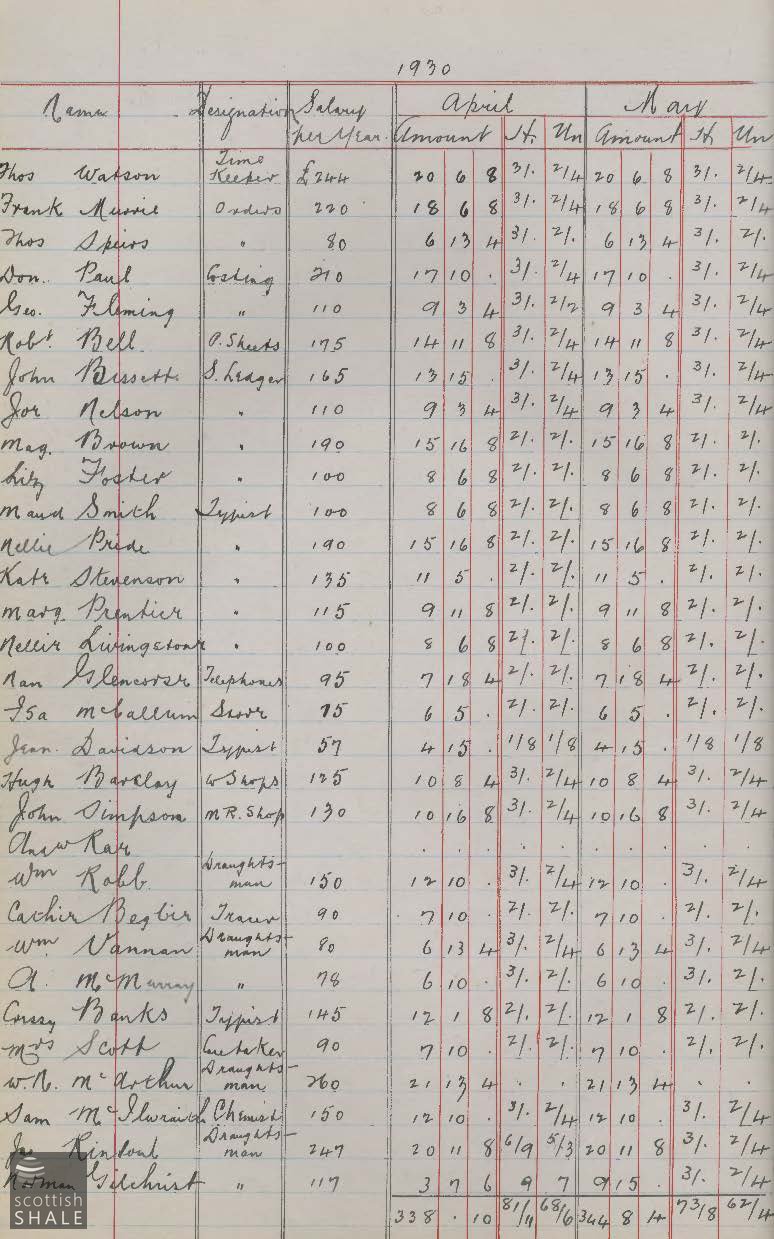 1930
Name Designation Salary per Year. April May
Amount H. Un Amount H. Un
Thos Watson Time Keeper £244 20 6 8 3/. 2/4 20 6 8 3/. 2/4
Frank Murrie Orders 220 18 6 8 3/. 2/4 18 6 8 3/. 2/4
Thos Speirs " 80 6 13 4 3/. 2/. 6 13 4 3/. 2/.
Don. Paul Costing 210 17 10 . 3/. 2/4 17 10 . 3/. 2/4
Geo. Fleming " 110 9 3 4 3/. 2/2 9 3 4 3/. 2/4
Robt Bell P. Sheets 175 14 11 8 3/. 2/4 14 11 8 3/. 2/4
John Bissett S. Ledger 165 13 15 . 3/. 2/4 13 15 . 3/. 2/4
Joe Nelson " 110 9 3 4 3/. 2/4 9 3 4 3/. 2/4
Mag. Brown " 190 15 16 8 2/. 2/. 15 16 8 2/. 2/.
Liz Foster " 100 8 6 8 2/. 2/. 8 6 8 2/. 2/.
Maud Smith Typist 100 8 6 8 2/. 2/. 8 6 8 2/. 2/.
Nellie Pride " 190 15 16 8 2/. 2/. 15 16 8 2/. 2/.
Kate Stevenson " 135 11 5 . 2/. 2/. 11 5 . 2/. 2/.
Marg. Prentice " 115 9 11 8 2/. 2/. 9 11 8 2/. 2/.
Nellie Livingstone " 100 8 6 8 2/. 2/. 8 6 8 2/. 2/.
Nan Glencorse Telephones 95 7 18 4 2/. 2/. 7 18 4 2/. 2/.
Isa McCallum Store 75 6 5 . 2/. 2/. 6 5 . 2/. 2/.
Jean. Davidson Typist 57 4 15 . 1/8 1/8 4 15 . 1/8 1/8
Hugh Barclay W Shops 125 10 8 4 3/. 2/4 10 8 4 3/. 2/4
John Simpson M R. Shop 130 10 16 8 3/. 2/4 10 16 8 3/. 2/4
Andw Rae . . . . . . . . . .
Wm Robb Draughtsman 150 12 10 . 3/. 2/4 12 10 . 3/. 2/4
Cathie Begbie Tracer 90 7 10 . 2/. 2/. 7 10 . 2/. 2/.
Wm Vannan Draughtsman 80 6 13 4 3/. 2/4 6 13 4 3/. 2/4
A. McMurray " 78 6 10 . 3/. 2/. 6 10 . 3/. 2/.
Crissy Banks Typist 145 12 1 8 2/. 2/. 12 1 8 2/. 2/.
Mrs Scott Caretaker 90 7 10 . 2/. 2/. 7 10 . 2/. 2/.
W. N. McArthur Draughtsman 260 21 13 4 . . 21 13 4 . .
Sam McIlwraith Chemist 150 12 10 . 3/. 2/4 12 10 . 3/. 2/4
Jas Kintoul Draughtsman 247 20 11 8 6/9 5/3 20 11 8 3/. 2/4
Norman Gilchrist " 117 3 7 6 9 7 9 15 . 3/. 2/4
338 . 10 81/11 68/6 344 8 4 73/8 62/4
scottish
SHALE